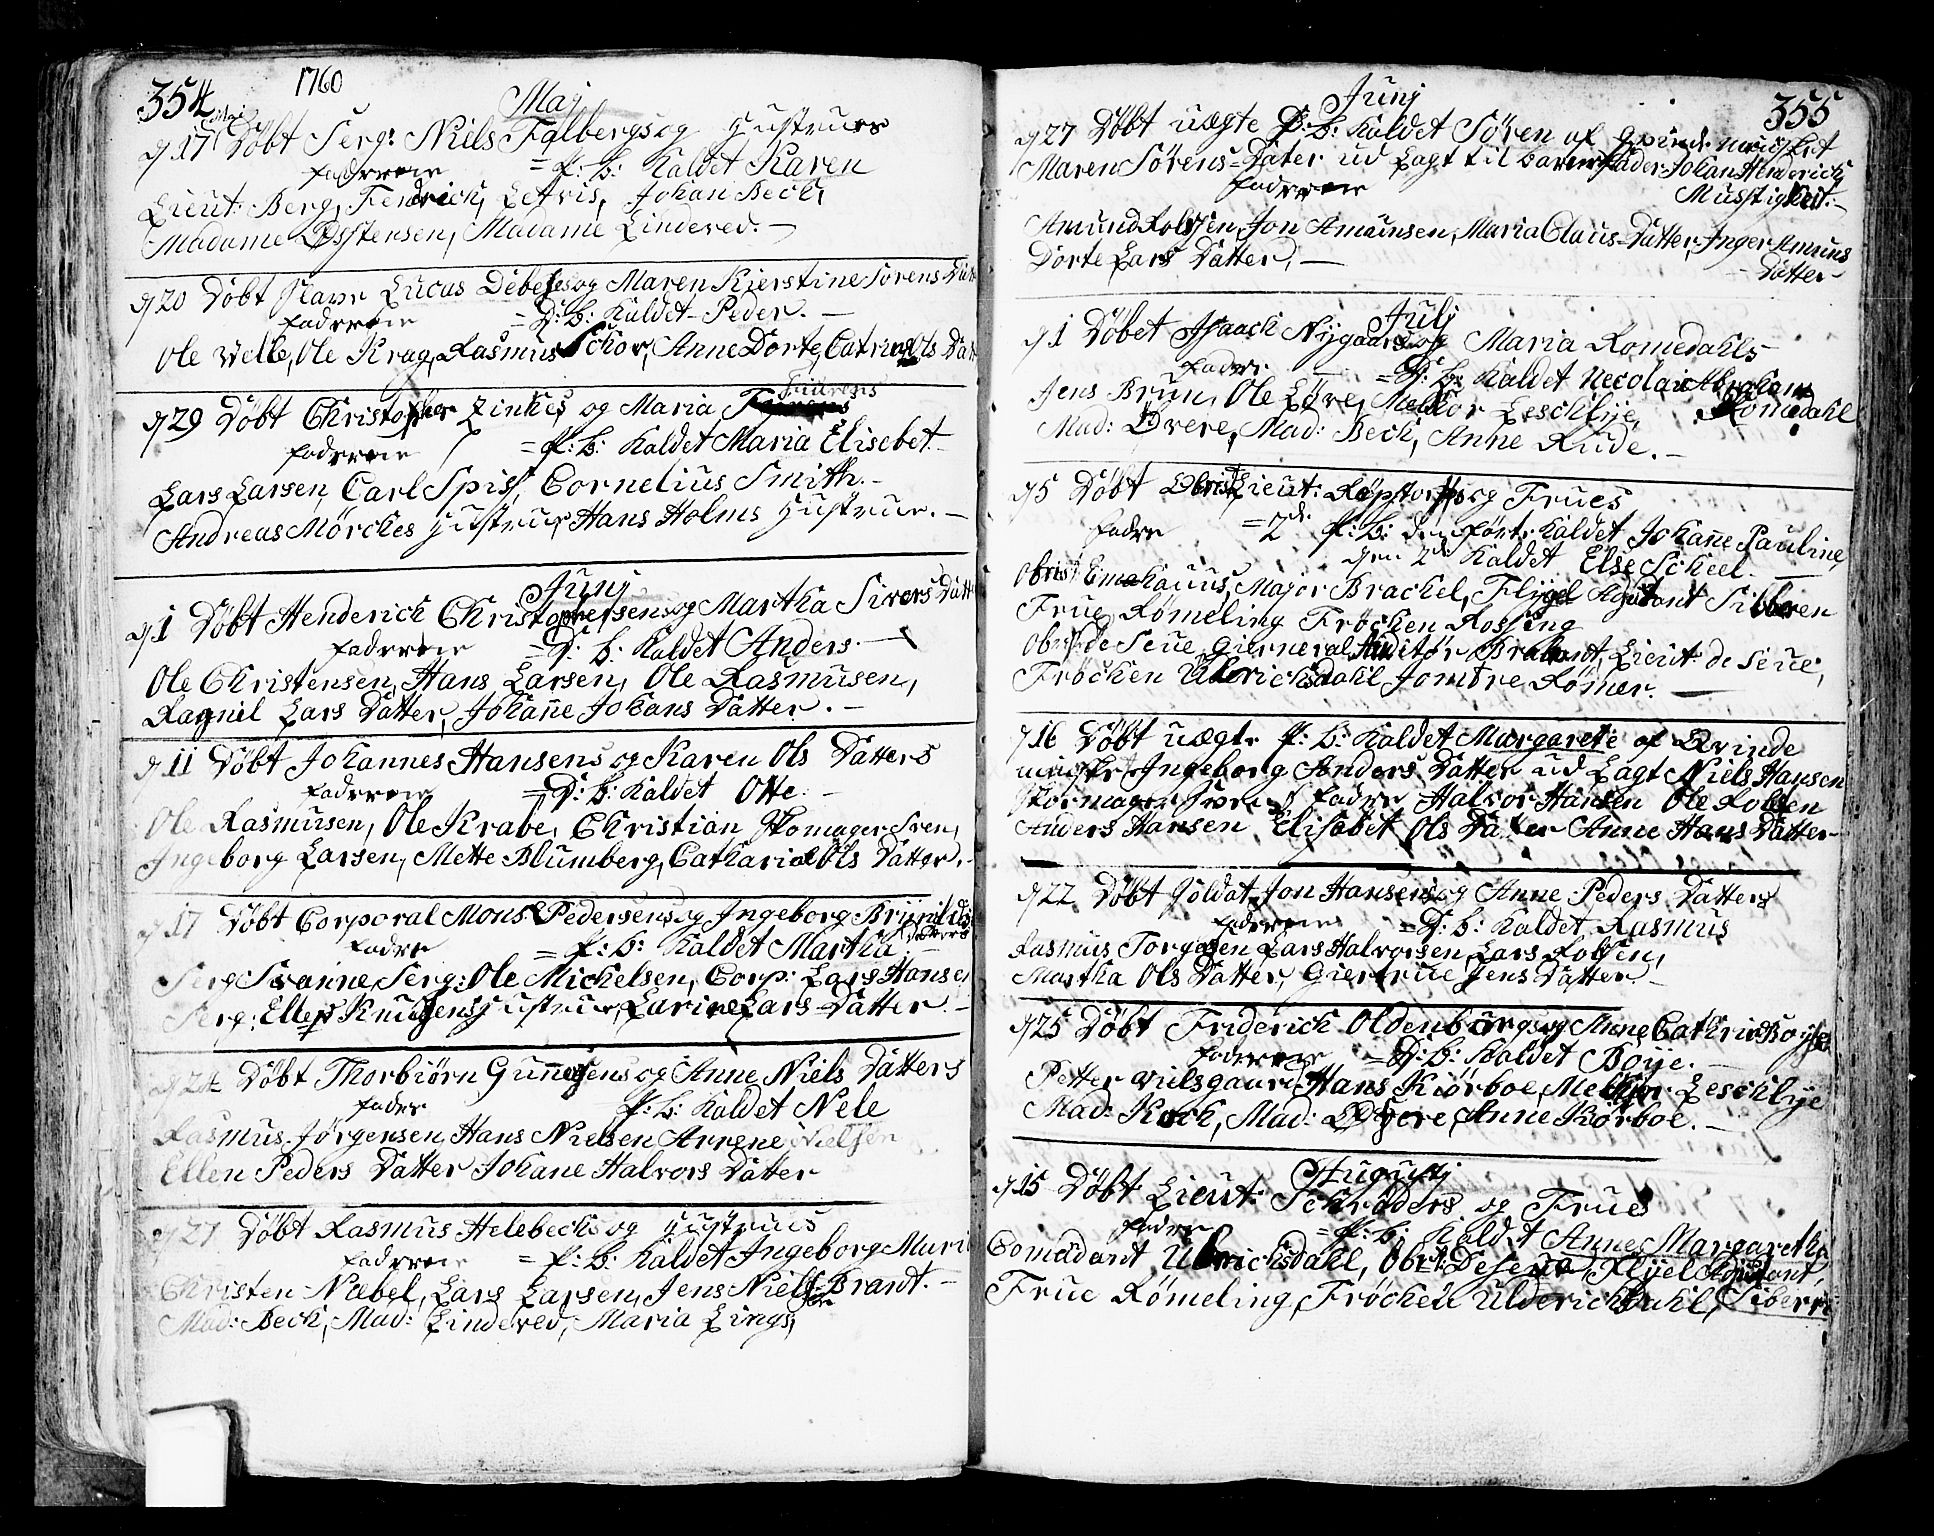 354 1760
Maj
17 Døbt Serg: Niels Falbergs og Hustrues
faderne = P: B: Kaldet Karen
Lieut: Berg, Fendrich, Letris, Johan Beck,
Madame Østensen, Madame Lindered. —
20 Døbt Slave Lucas Debes og Maren Kierstine Sørens Datt
fadrene = D: B: Kaldet Peder. —
Ole Velle, Ole Krag, Rasmus Schor, Anne Dorte, Catrina Ols Datt
29 Døbt Christopher Zinkes og Maria
faderne = P: B: Kaldet Maria Elisebet. —
Lars Larsen, Carl Spiss, Cornelius Smith. —
Andreas Mörches Hustrue, Hans Holms Hustrue. —
Junj
1 Døbt Henderich Christophersens og Martha Sivers Datt
faderne = D: B: Kaldet Anders. —
Ole Christensen, Hans Larsen, Ole Rasmusen,
Ragnil Lars Datter, Johane Johans Datter. —
11 Døbt Johannes Hansens og Karen Ols Datters
faderne = D: B: Kaldet Otte. —
Ole Rasmusen, Ole Krabe, Christian Skomager Sven,
Ingeborg Larsen, Mette Blumberg, Catharina Ols Datter. —
17 Døbt Corporal Mons Pedersens og Ingeborg Brynilds
Datters
fadre = P: B: Kaldet Martha
Serg: Svanne, Serg: Ole Michelsen, Corp: Lars Hansen
Serg: Ellef Knudsens Hustrue, Larine Lars Datter. —
24 Døbt Thorbiørn Gunnesens og Anne Niels Datters
fadre P: B: Kaldet Nele
Rasmus Jørgensen, Hans Nielsen Arrene Nielsen
Ellen Peders Datter Johane Halvors Datter
27 Døbt Rasmus Helebechs og Hustrues
faderne = P: B: Kaldet Ingeborg Mari
Christen Næbel, Lars Larsen, Jens Nielsen Brant. —
Mad: Beck, Mad: Lindered, Maria Lings,
355
Junj
27 Døbt uægte D: B: Kaldet Søren af Qvinde mennisket
Maren Sørens Dater ud Lagt til barne fader Johan Henderich
faderne Musstigkeit. —
Amund Rolfsen, Jon Amunsen, Maria Claus Datter, Inger Amuns
Datter
Dorte Lars Datter, —
Julj
1 Døbet Isaach Nygaards og Maria Romedahls
fadre = D: B: Kaldet Necolai Abraham
Romedahl
Jens Brun, Ole Løre, Melkior Leschlye,
Mad: Øvere, Mad: Beck, Anne Rude. —
5 Døbt Obrist Lieut: Røpstorfs og Frues
fadre = 2 de P: B: den først Kaldet Johanne Pauline,
den 2de Kaldet Else Scheel. —
Obrist Emahauus, Major Brackel, Flygel Adjutant Sibbern
Frue Rømeling Frøcken Rossing
Obrist de Seue, Gierneral Auditør Brabant, Lieut: de Seue,
Frøcken Ulrichsdahl Jomfre Rømer. —
16 Døbt uægte P: B: Kaldet Margarete af Qvinde
minske Ingeborg Anders Datter ud Lagt Niels Hansen
Skomager Svend fadre Halvor Hansen Ole Rolsen
Anders Hansen Elisabet Ols Datter Anne Hans Datter
22 Døbt Soldat Jon Hansens og Anne Peders Datters
faderne = D: B: Kaldet Rasmus
Rasmus Torgesen Lars Halvorsen Lars Rolsen,
Martha Ols Datter, Giertrue Jens Datter. —
25 Døbt Friderich Oldenburgs og Anne Cathrin Boyses
faderne = D: B: Kaldet Boije. —
Petter Vielsgaard, Hans Kiørboe, Melkior Leschlye
Mad: Kock, Mad: Øvere, Anne Kiørboe. —
Augustj
15 Døbt Lieut: Schrøders og Frues
fadre = P: B: Kaldet Anne Margaretha
Comadant Ulrichsdahl, Obrist De Seue, Flyel Adjutant
Frue Rømeling, Frøcken Ulderichsdahl, Sibern